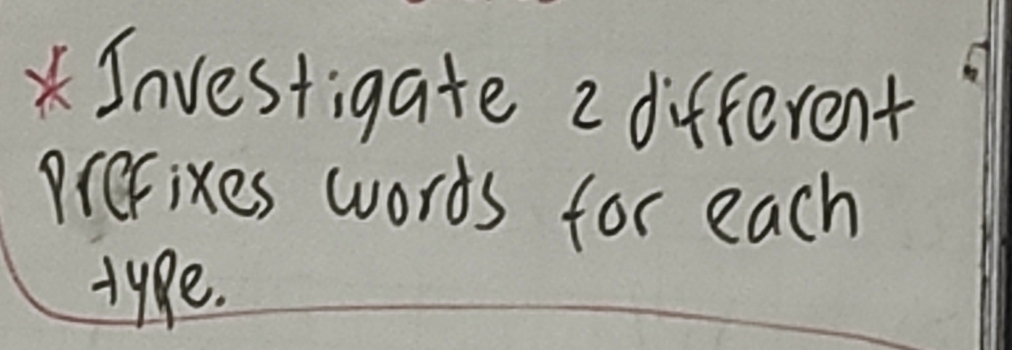 * Investigate 2 different
Prefixes words for each
type.